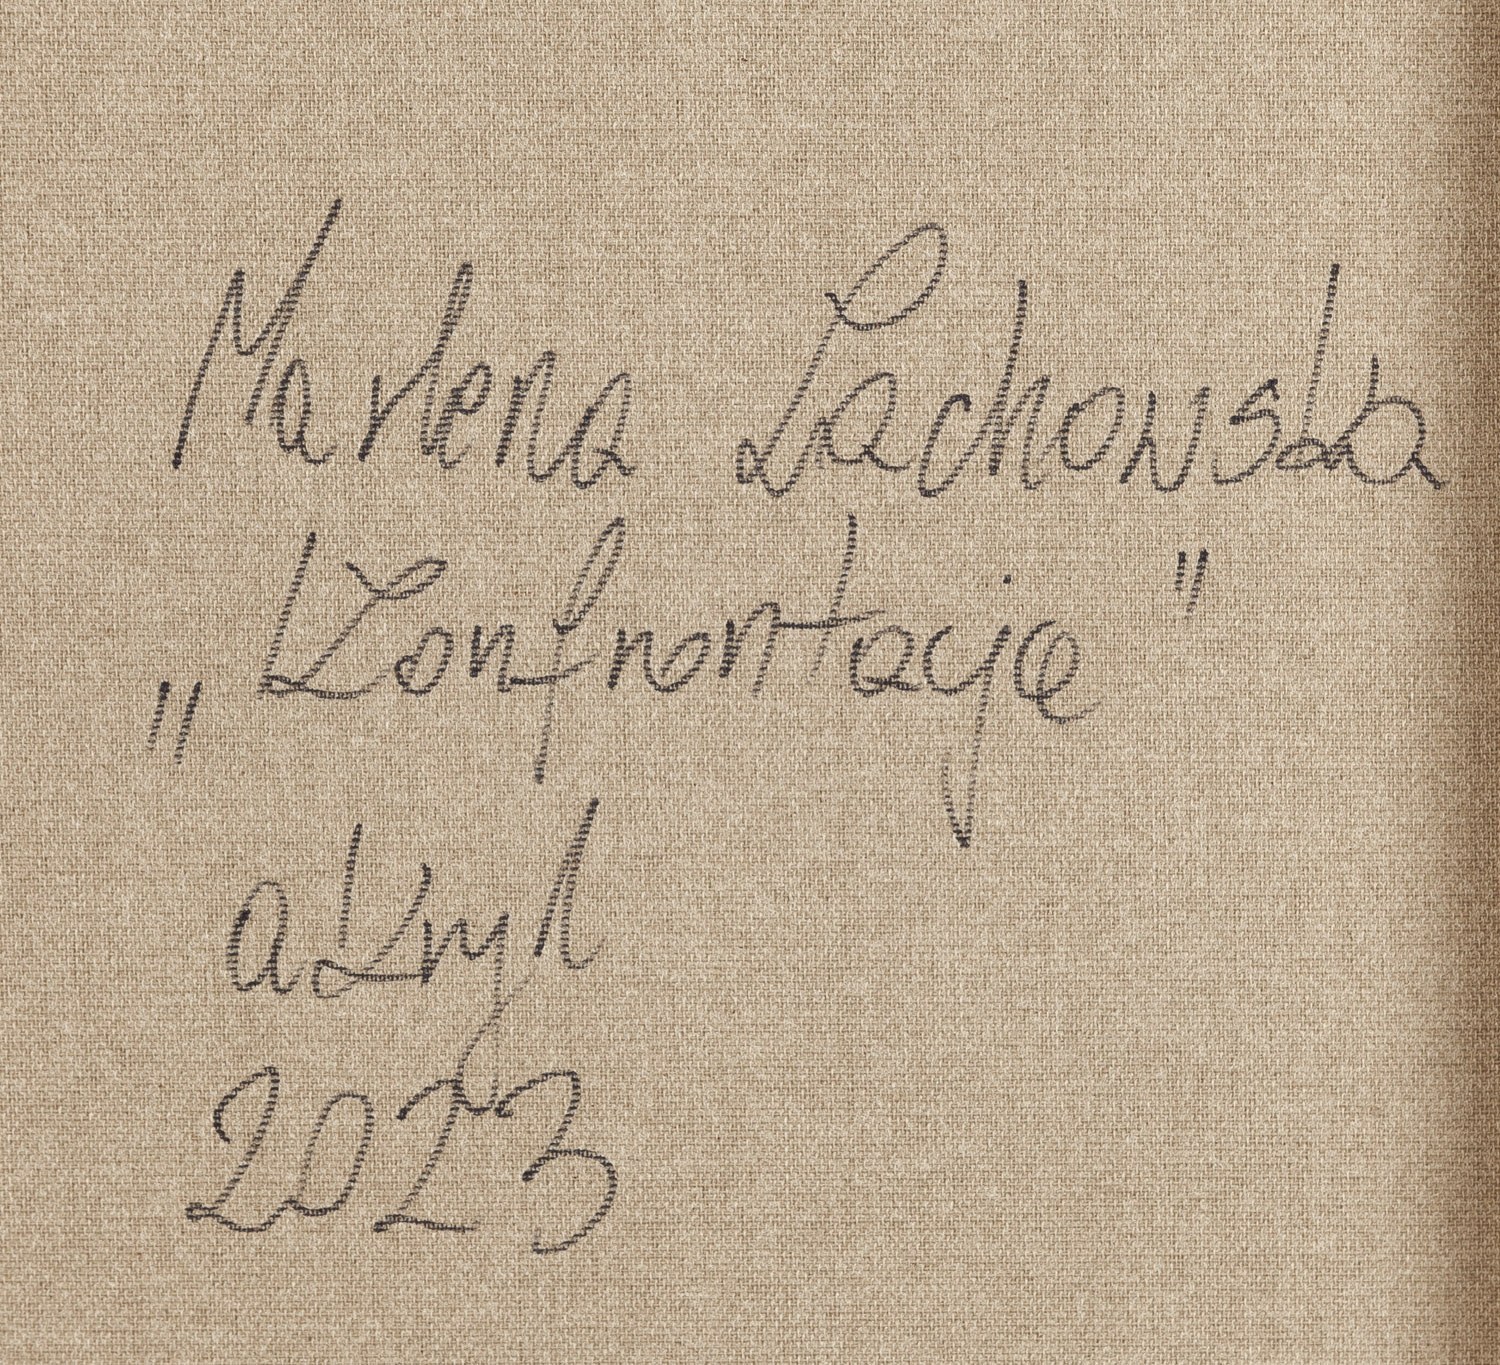 Marlena Lachowska
„Konfrontacje"
akryl
2023